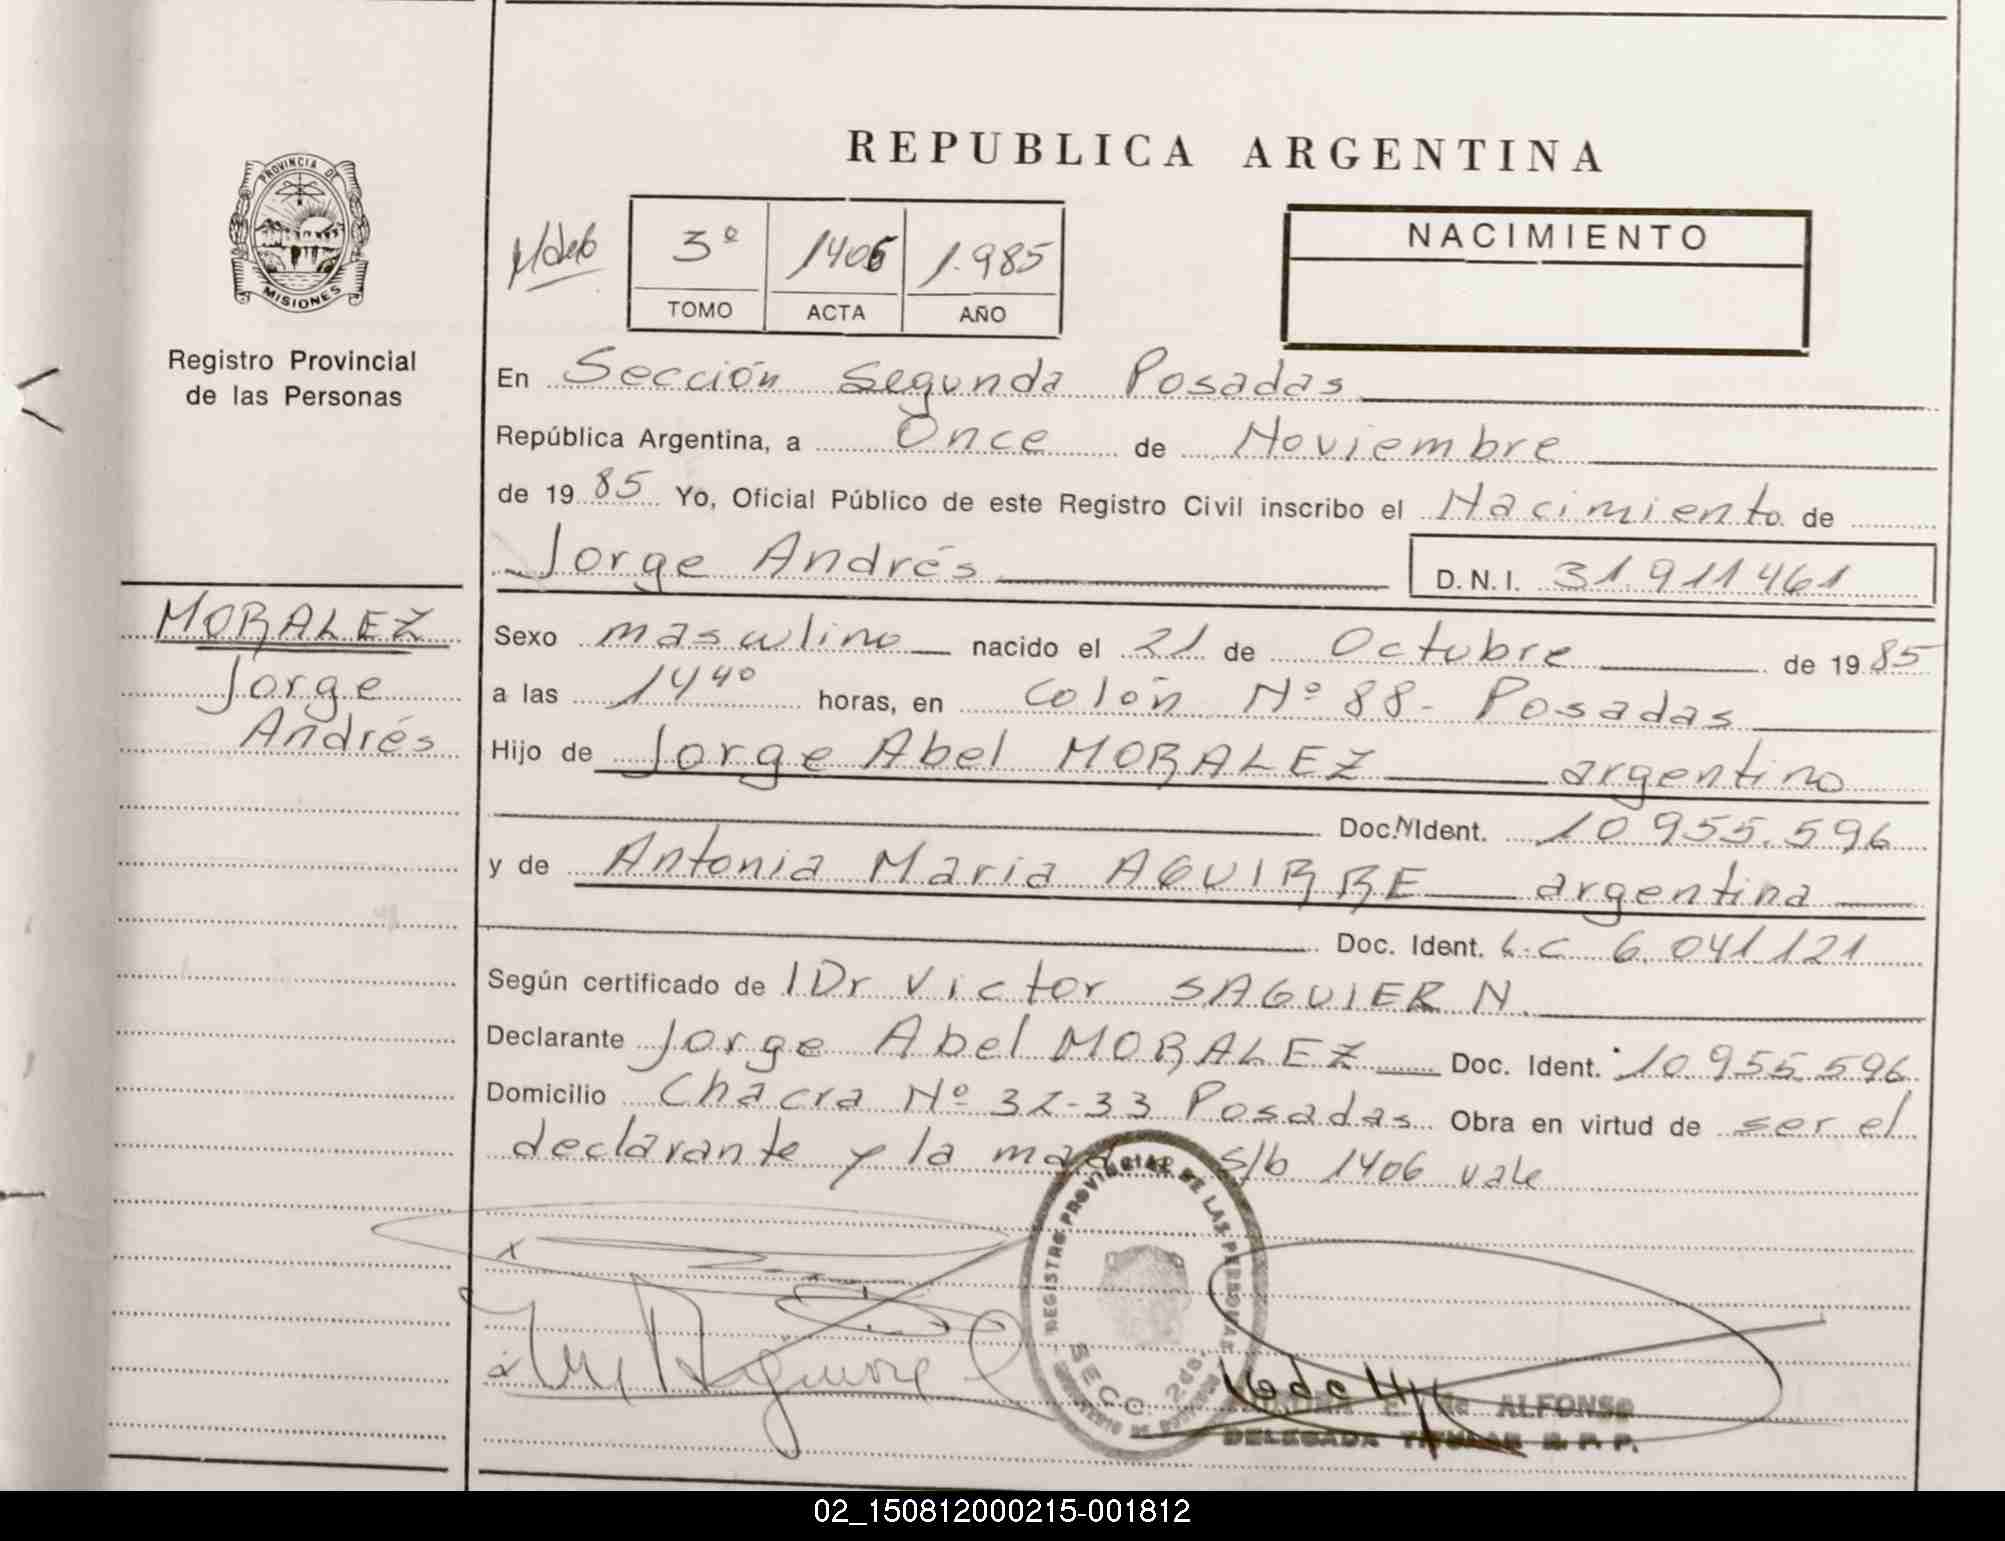 REPUBLICA ARGENTINA
PROVINCIA DE
MISIONES
Registro Provincial
de las Personas
3º 1406 1.985
TOMO ACTA AÑO
NACIMIENTO
En Sección Segunda Posadas
República Argentina, a Once de Noviembre
de 1985 Yo, Oficial Público de este Registro Civil inscribo el Nacimiento de
Jorge Andrés D.N.I. 31.911461
MORALEZ
Jorge
Andrés
Sexo masculino nacido el 21 de Octubre de 1985
a las 14 40 horas, en Colón Nº 88- Posadas
Hijo de Jorge Abel MORALEZ argentino
Doc. Ident. 10.955.596
y de Antonia Maria AGUIRRE argentina
Doc. Ident. L.C 6.041.121
Según certificado de Dr Victor SAGUIER N.
Declarante Jorge Abel MORALEZ Doc. Ident. 10.955.596
Domicilio Chacra Nº 32-33 Posadas Obra en virtud de ser el
declarante y la madre s/b 1406 vale
REGISTRO PROVINCIAL DE LAS PERSONAS
SECC. 2da.
Aguirre
E. de ALFONSO
DELEGADA TITULAR R. P. P.
02_150812000215-001812